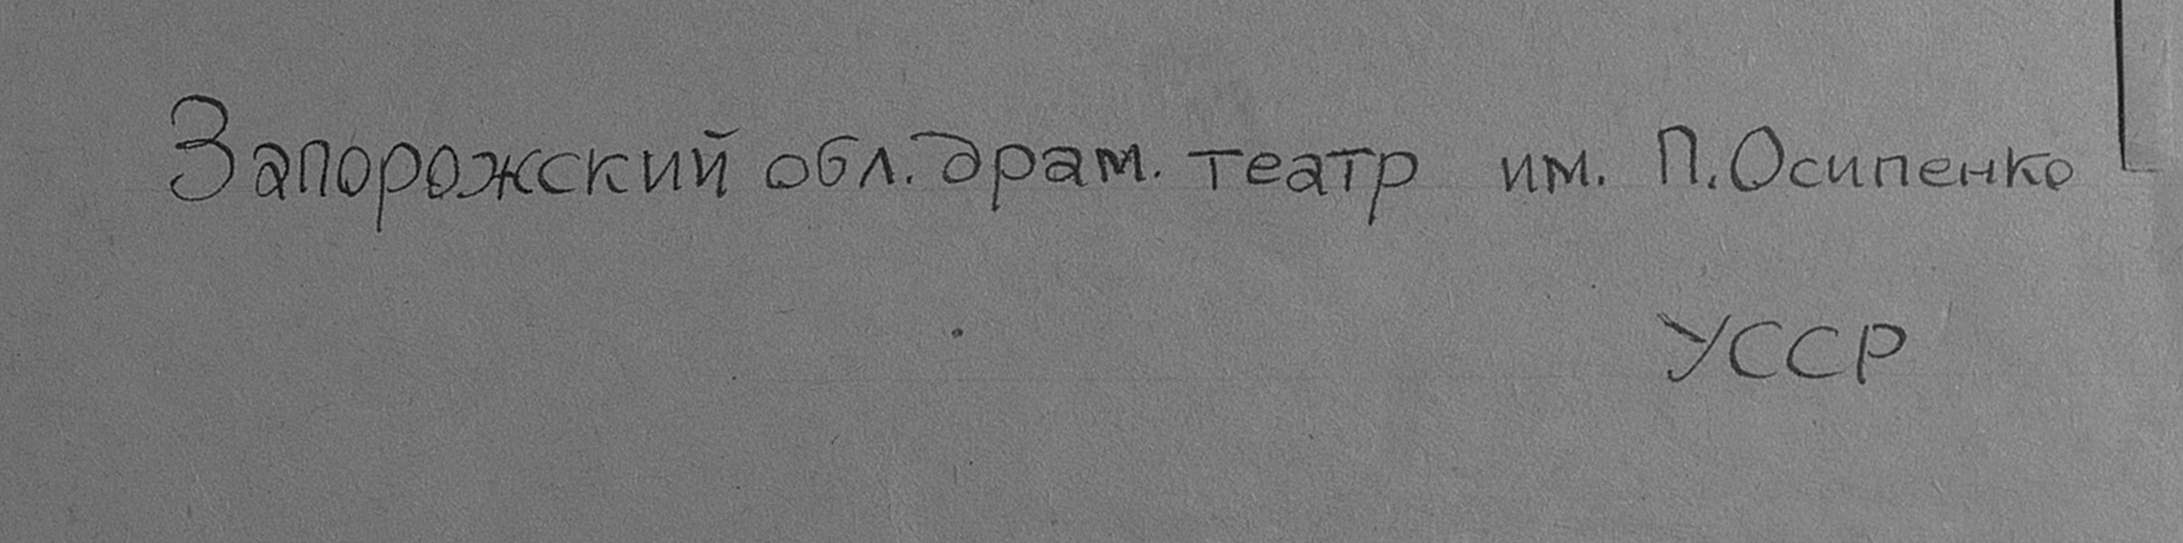 Запорожский обл. драм. театр им. П. Осипенко
УССР